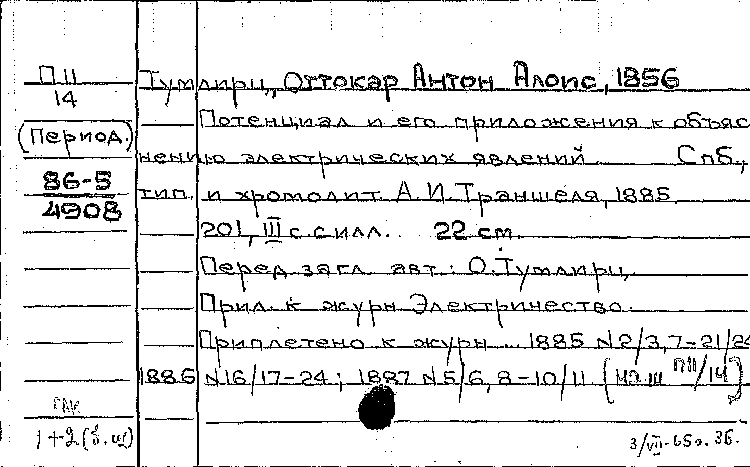 П11
14
(Период)
86-5
4908
Тумлирц, Оттокар Антон Алоис, 1856
Потенциал и его приложения к объяс
нению электрических явлений Спб.,
тип. и хромолит. А.И.Траншеля, 1885.
201, III с. с илл. 22 см.
Перед загл. авт.: О.Тумлирц.
Прил. к журн Электричество.
Приплетено к журн... 1885 №2/3,7-21/24
1886 №16/17-24; 1887 №5/6, 8-10/11 ( П11/14)
1+2(б.ш)
3/VII-65г. ЗБ.